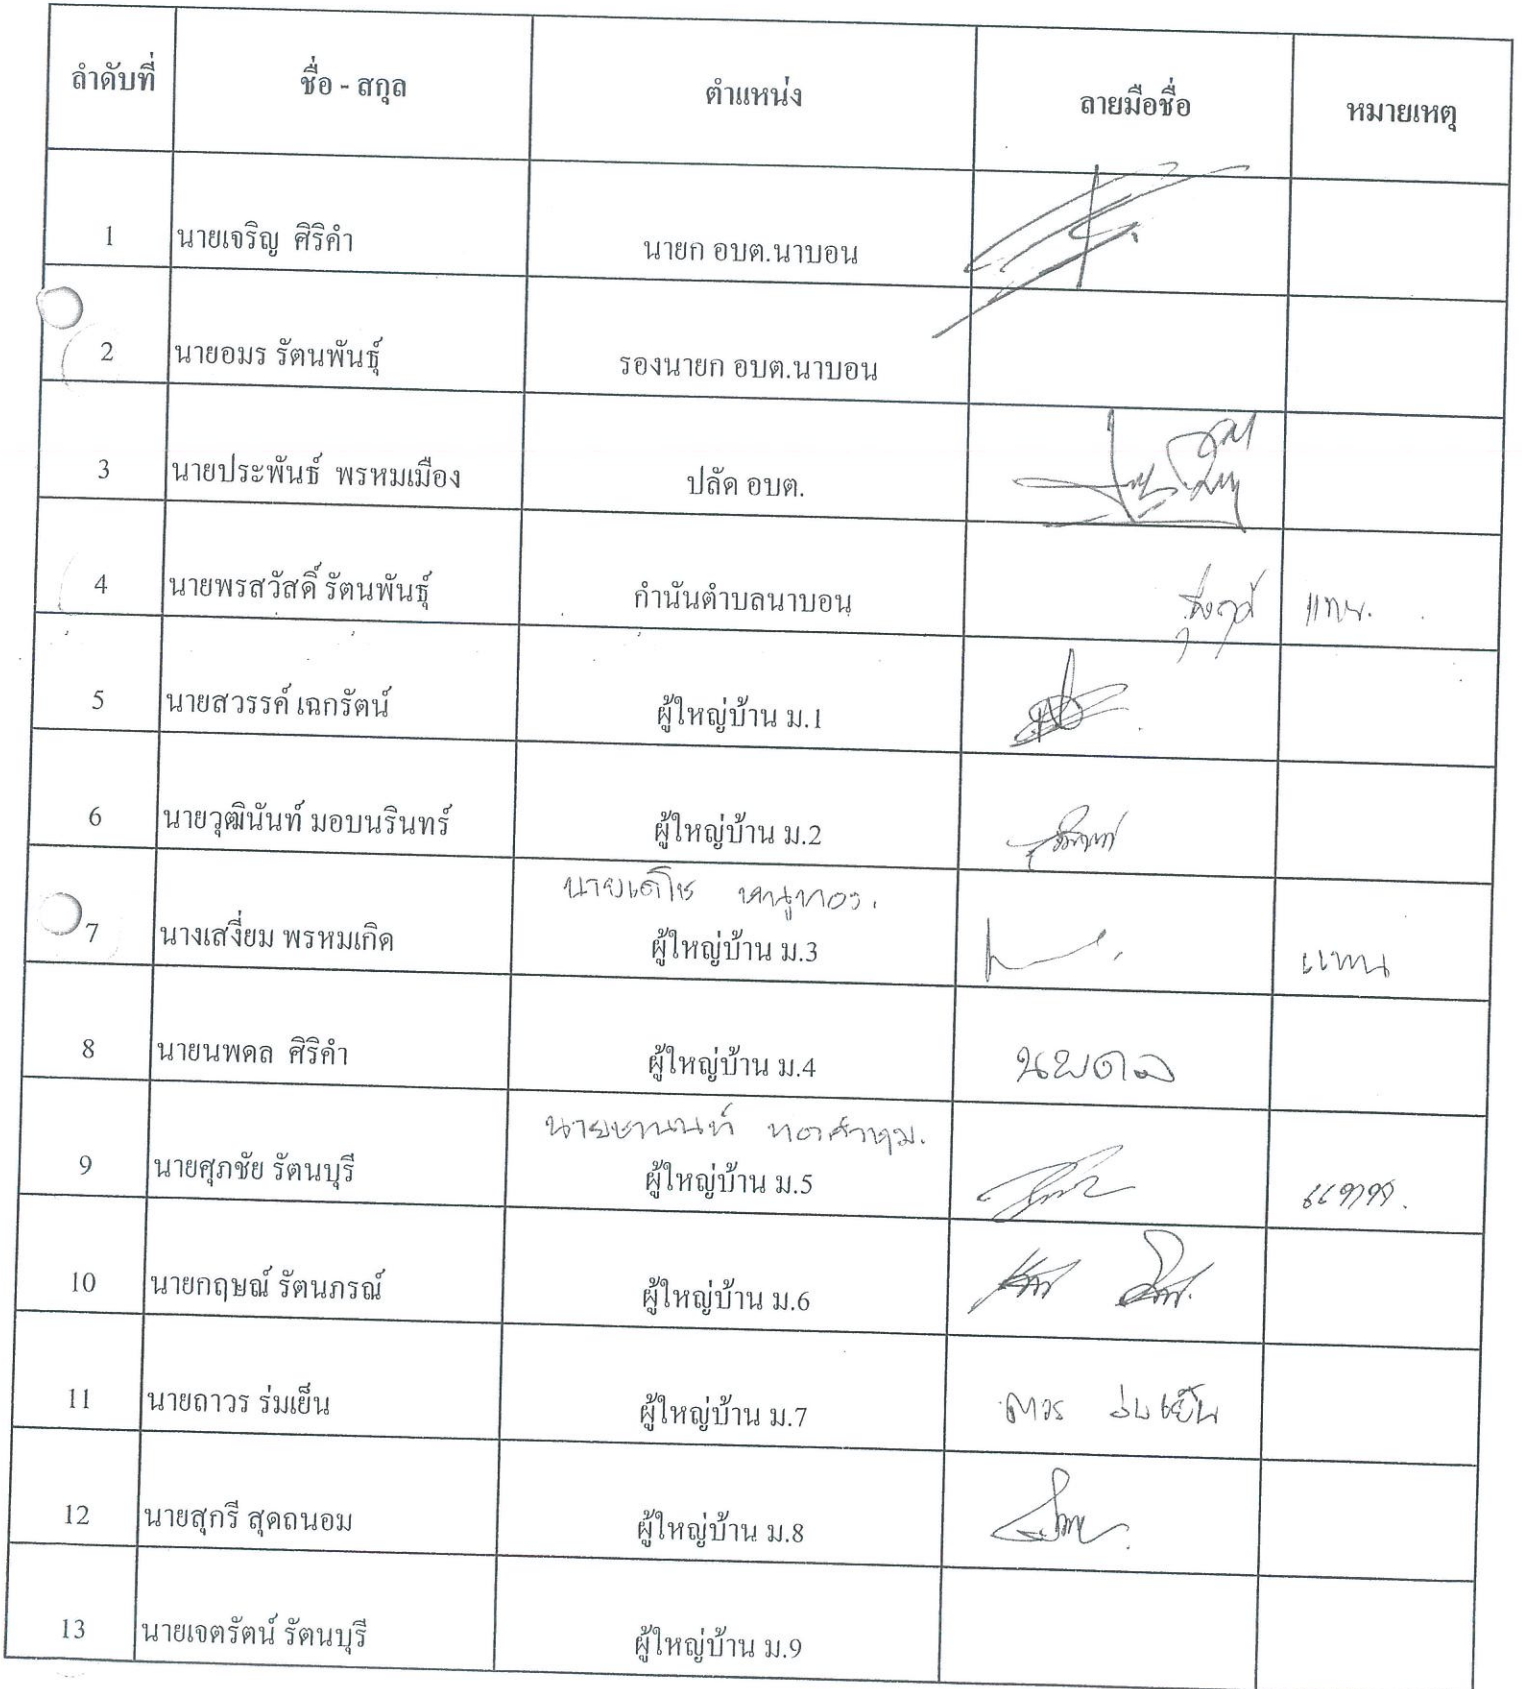 ลำดับที่ ชื่อ - สกุล ตำแหน่ง ลายมือชื่อ หมายเหตุ
1 นายเจริญ ศิริคำ นายก อบต.นาบอน
2 นายอมร รัตนพันธุ์ รองนายก อบต.นาบอน
3 นายประพันธ์ พรหมเมือง ปลัด อบต.
4 นายพรสวัสดิ์ รัตนพันธุ์ กำนันตำบลนาบอน แทน.
5 นายสวรรค์ เฉกรัตน์ ผู้ใหญ่บ้าน ม.1
6 นายวุฒินันท์ มอบนรินทร์ ผู้ใหญ่บ้าน ม.2
นายเดโช หนูทอง.
7 นางเสงี่ยม พรหมเกิด ผู้ใหญ่บ้าน ม.3 แทน
8 นายนพดล ศิริคำ ผู้ใหญ่บ้าน ม.4 นพดล
นายชานนท์
9 นายศุภชัย รัตนบุรี ผู้ใหญ่บ้าน ม.5 แทน.
10 นายกฤษณ์ รัตนภรณ์ ผู้ใหญ่บ้าน ม.6
11 นายถาวร ร่มเย็น ผู้ใหญ่บ้าน ม.7 ถาวร ร่มเย็น
12 นายสุกรี สุดถนอม ผู้ใหญ่บ้าน ม.8
13 นายเจตรัตน์ รัตนบุรี ผู้ใหญ่บ้าน ม.9